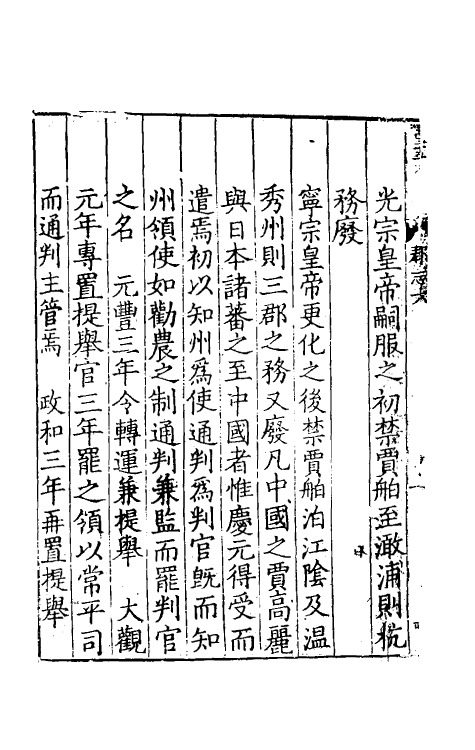 光宗皇帝嗣服之初禁賈舶至澉浦則杭
務廢
寧宗皇帝更化之後禁賈舶泊江陰及温
秀州則三郡之務又廢凡中國之賈高麗
與日本諸蕃之至中國者惟慶元得受而
遣焉初以知州爲使通判爲判官旣而知
州領使如勸農之制通判兼監而罷判官
之名　元豐三年令轉運兼提舉　大觀
元年專置提舉官三年罷之領以常平司
而通判主管焉　政和三年再置提舉